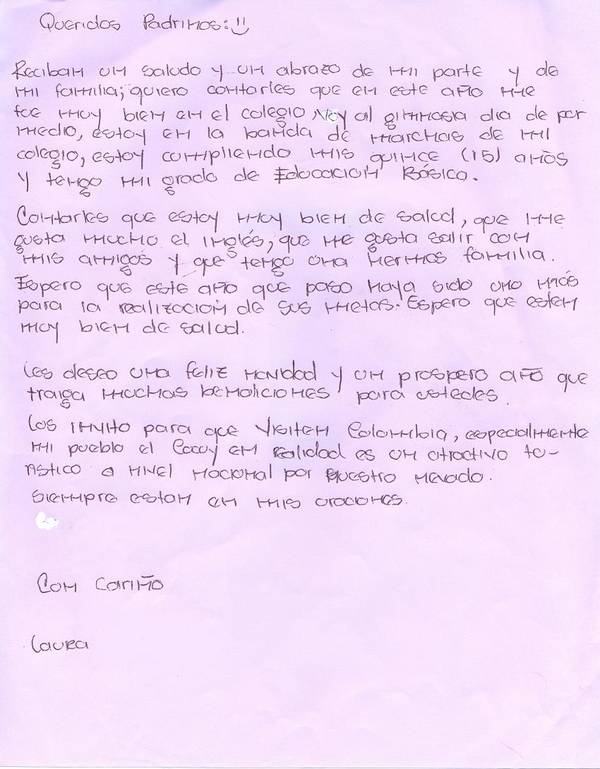 Queridos Padrinos: :)
Reciban un saludo y un abrazo de mi parte y de
mi familia; quiero contarles que en este año me
fue muy bien en el colegio, voy al gimnasia dia de por
medio, estoy en la banda de marchas de mi
colegio, estoy cumpliendo mis quince (15) años
y tengo mi grado de Educación Básica.
Contarles que estoy muy bien de salud, que me
gusta mucho el inglés, que me gusta salir con
mis amigos y que tengo una hermos familia.
Espero que este año que paso haya sido uno más
para la realización de sus metas. Espero que esten
muy bien de salud.
Les deseo una feliz navidad y un prospero año que
traiga muchas bendiciones para ustedes.
Los invito para que visiten Colombia, especialmente
mi pueblo el Cocuy en realidad es un atractivo tu-
rístico a nivel nacional por nuestro nevado.
Siempre estan en mis oraciones.
Con cariño
Laura